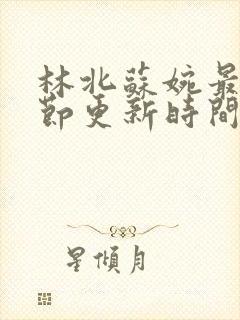 林北蘇婉最
節更新時間
星傾月